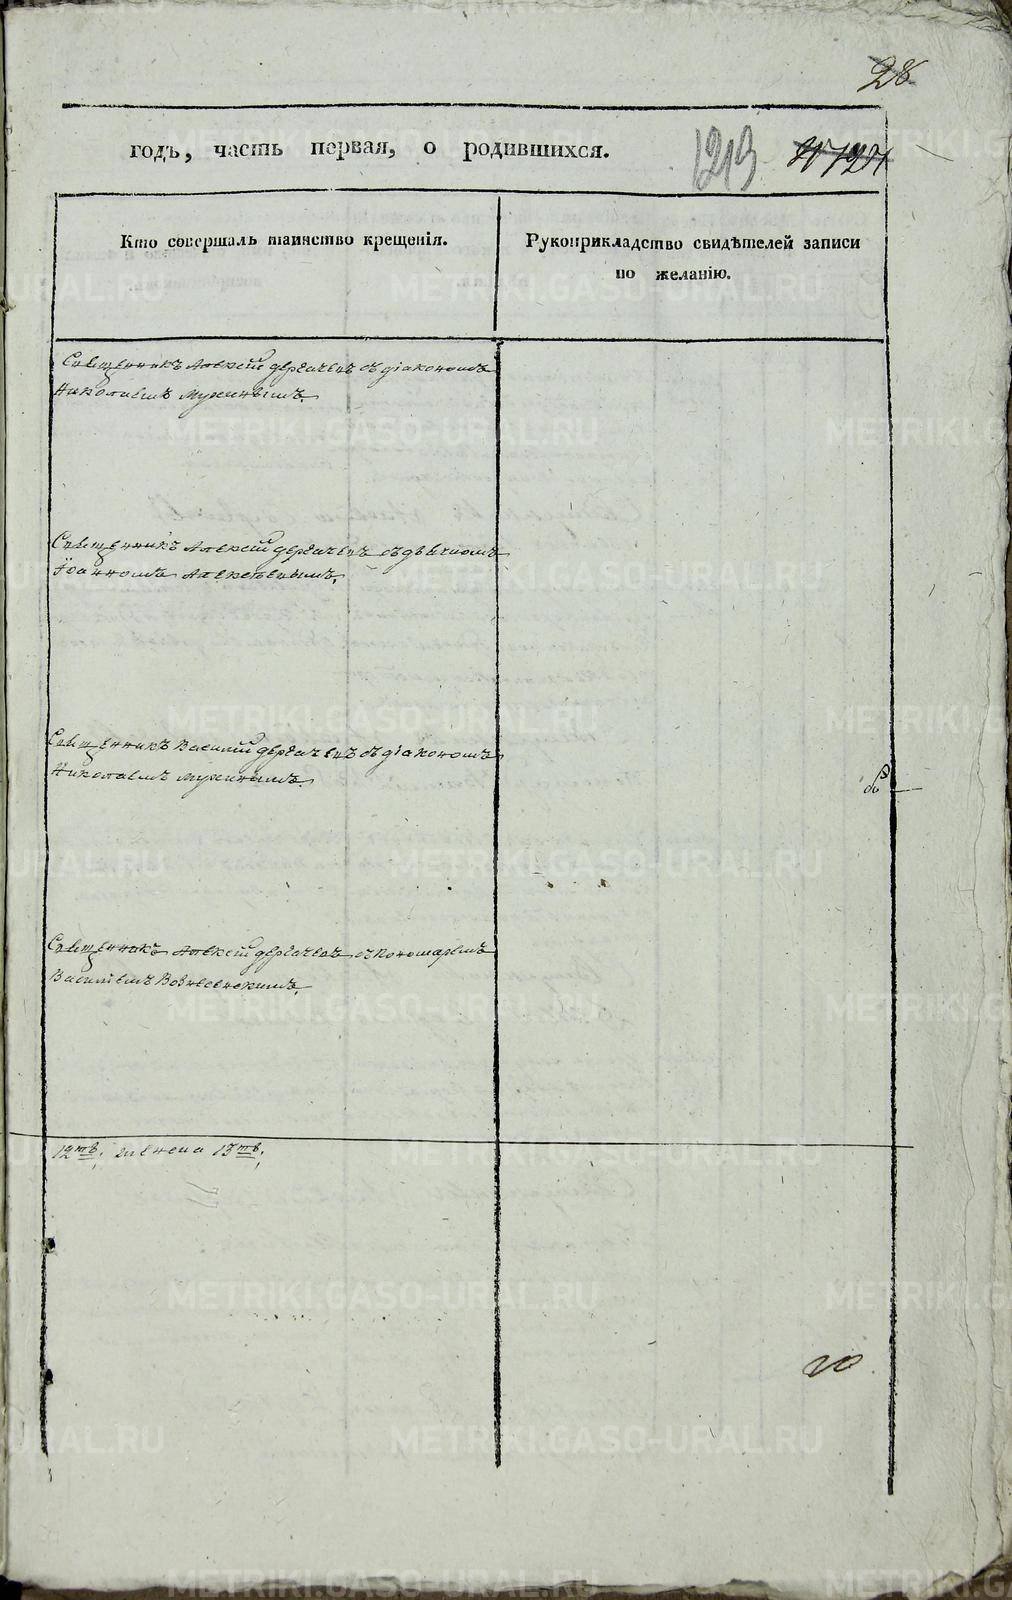 28
годъ, часть первая, о родившихся.
1213
Кто совершалъ таинство крещенія.
Рукоприкладство свидѣтелей записи
по желанію.
Священникъ Алексій Дергачевъ съ діакономъ
Николаемъ Мухинымъ.
Священникъ Алексій Дергачевъ съ дьячкомъ
Іоанномъ Алексѣевымъ.
Священникъ Василій Дергачевъ съ діакономъ
Николаемъ Мухинымъ.
Священникъ Алексій Дергачевъ съ Пономаремъ
Василіемъ
12
METRIKI.GASO-URAL.RU